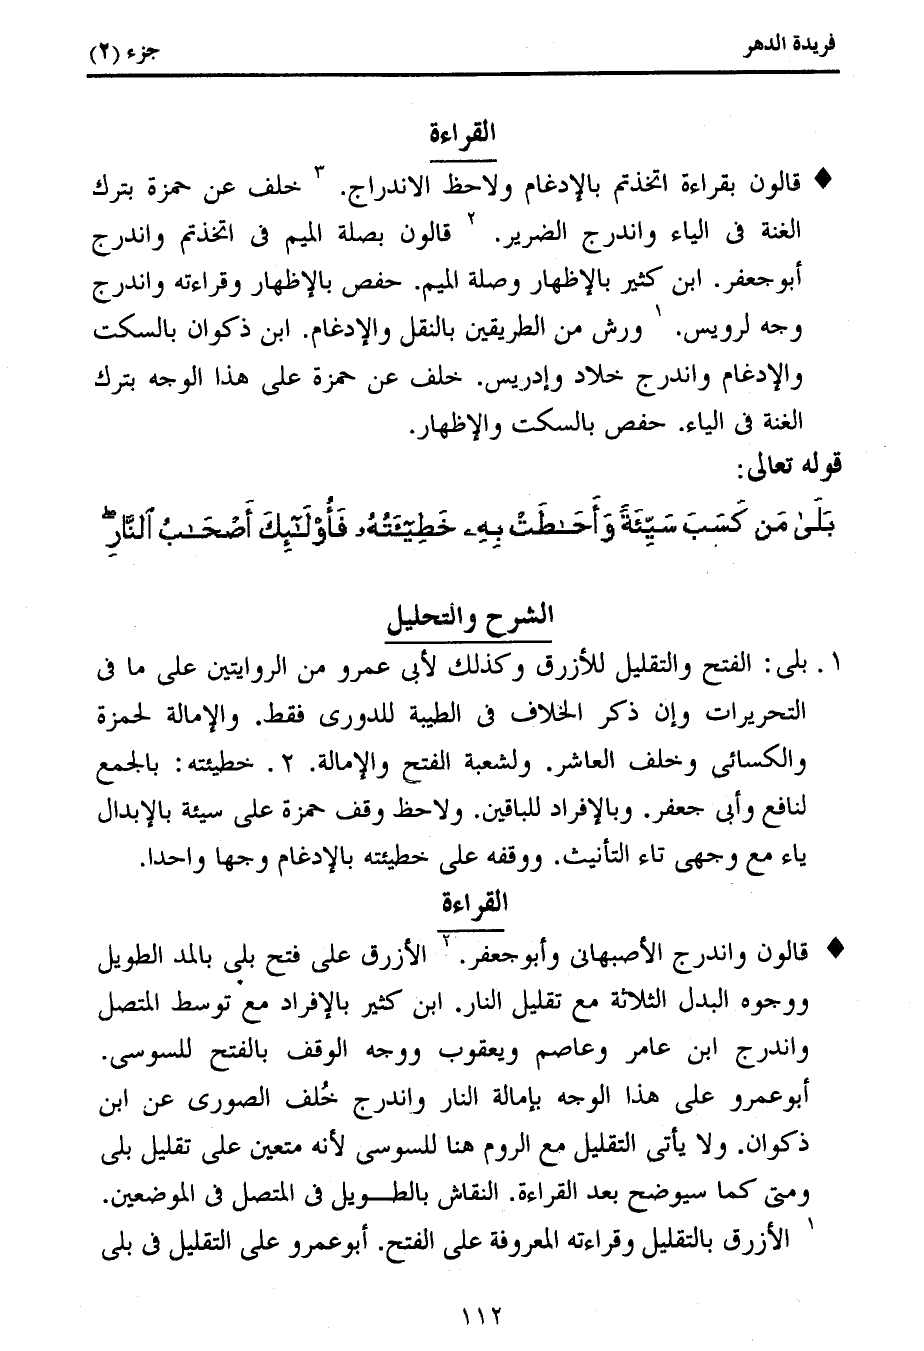 فريدة الدهر
جزء (٢)
القراءة
♦ قالون بقراءة اتخذتم بالإدغام ولاحظ الاندراج. ٣ خلف عن حمزة بترك
الغنة فى الياء واندرج الضرير. ٢ قالون بصلة الميم فى اتخذتم واندرج
أبوجعفر. ابن كثير بالإظهار وصلة الميم. حفص بالإظهار وقراءته واندرج
وجه لرويس. ١ ورش من الطريقين بالنقل والإدغام. ابن ذكوان بالسكت
والإدغام واندرج خلاد وإدريس. خلف عن حمزة على هذا الوجه بترك
الغنة فى الياء. حفص بالسكت والإظهار.
قوله تعالى:
بَلَىٰ مَن كَسَبَ سَيِّئَةً وَأَحَٰطَتْ بِهِۦ خَطِيٓـَٔتُهُۥ فَأُوْلَٰٓئِكَ أَصْحَٰبُ ٱلنَّارِۖ
الشرح والتحليل
١. بلى: الفتح والتقليل للأزرق وكذلك لأبى عمرو من الروايتين على ما فى
التحريرات وإن ذكر الخلاف فى الطيبة للدورى فقط. والإمالة لحمزة
والكسائى وخلف العاشر. ولشعبة الفتح والإمالة. ٢. خطيئته: بالجمع
لنافع وأبى جعفر. وبالإفراد للباقين. ولاحظ وقف حمزة على سيئة بالإبدال
ياء مع وجهى تاء التأنيث. ووقفه على خطيئته بالإدغام وجها واحدا.
القراءة
♦ قالون واندرج الأصبهانى وأبوجعفر. ٢ الأزرق على فتح بلى بالمد الطويل
ووجوه البدل الثلاثة مع تقليل النار. ابن كثير بالإفراد مع توسط المتصل
واندرج ابن عامر وعاصم ويعقوب ووجه الوقف بالفتح للسوسى.
أبوعمرو على هذا الوجه بإمالة النار واندرج خُلف الصورى عن ابن
ذكوان. ولا يأتى التقليل مع الروم هنا للسوسى لأنه متعين على تقليل بلى
ومتى كما سيوضح بعد القراءة. النقاش بالطـويل فى المتصل فى الموضعين.
١ الأزرق بالتقليل وقراءته المعروفة على الفتح. أبوعمرو على التقليل فى بلى
١١٢